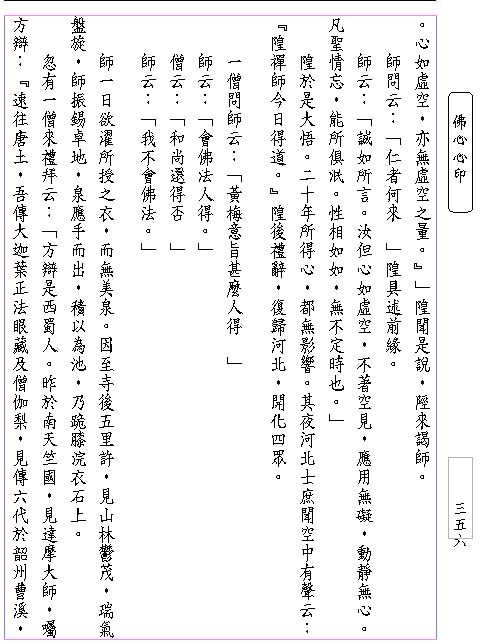 佛心心印
三五六
。心如虛空，亦無虛空之量。』」隍聞是說，陘來謁師。
師問云：「仁者何來　」隍具述前緣。
師云：「誠如所言。汝但心如虛空，不著空見，應用無礙，動靜無心。
凡聖情忘，能所俱泯。性相如如，無不定時也。」
隍於是大悟。二十年所得心，都無影響。其夜河北士庶聞空中有聲云：
『隍禪師今日得道。』隍後禮辭，復歸河北，開化四眾。
一僧問師云：「黃梅意旨甚麼人得　」
師云：「會佛法人得。」
僧云：「和尚還得否　」
師云：「我不會佛法。」
師一日欲濯所授之衣，而無美泉。因至寺後五里許，見山林鬱茂，瑞氣
盤旋，師振錫卓地，泉應手而出，積以為池，乃跪膝浣衣石上。
忽有一僧來禮拜云：「方辯是西蜀人。昨於南天竺國，見達摩大師，囑
方辯：『速往唐土，吾傳大迦葉正法眼藏及僧伽梨，見傳六代於韶州曹溪，